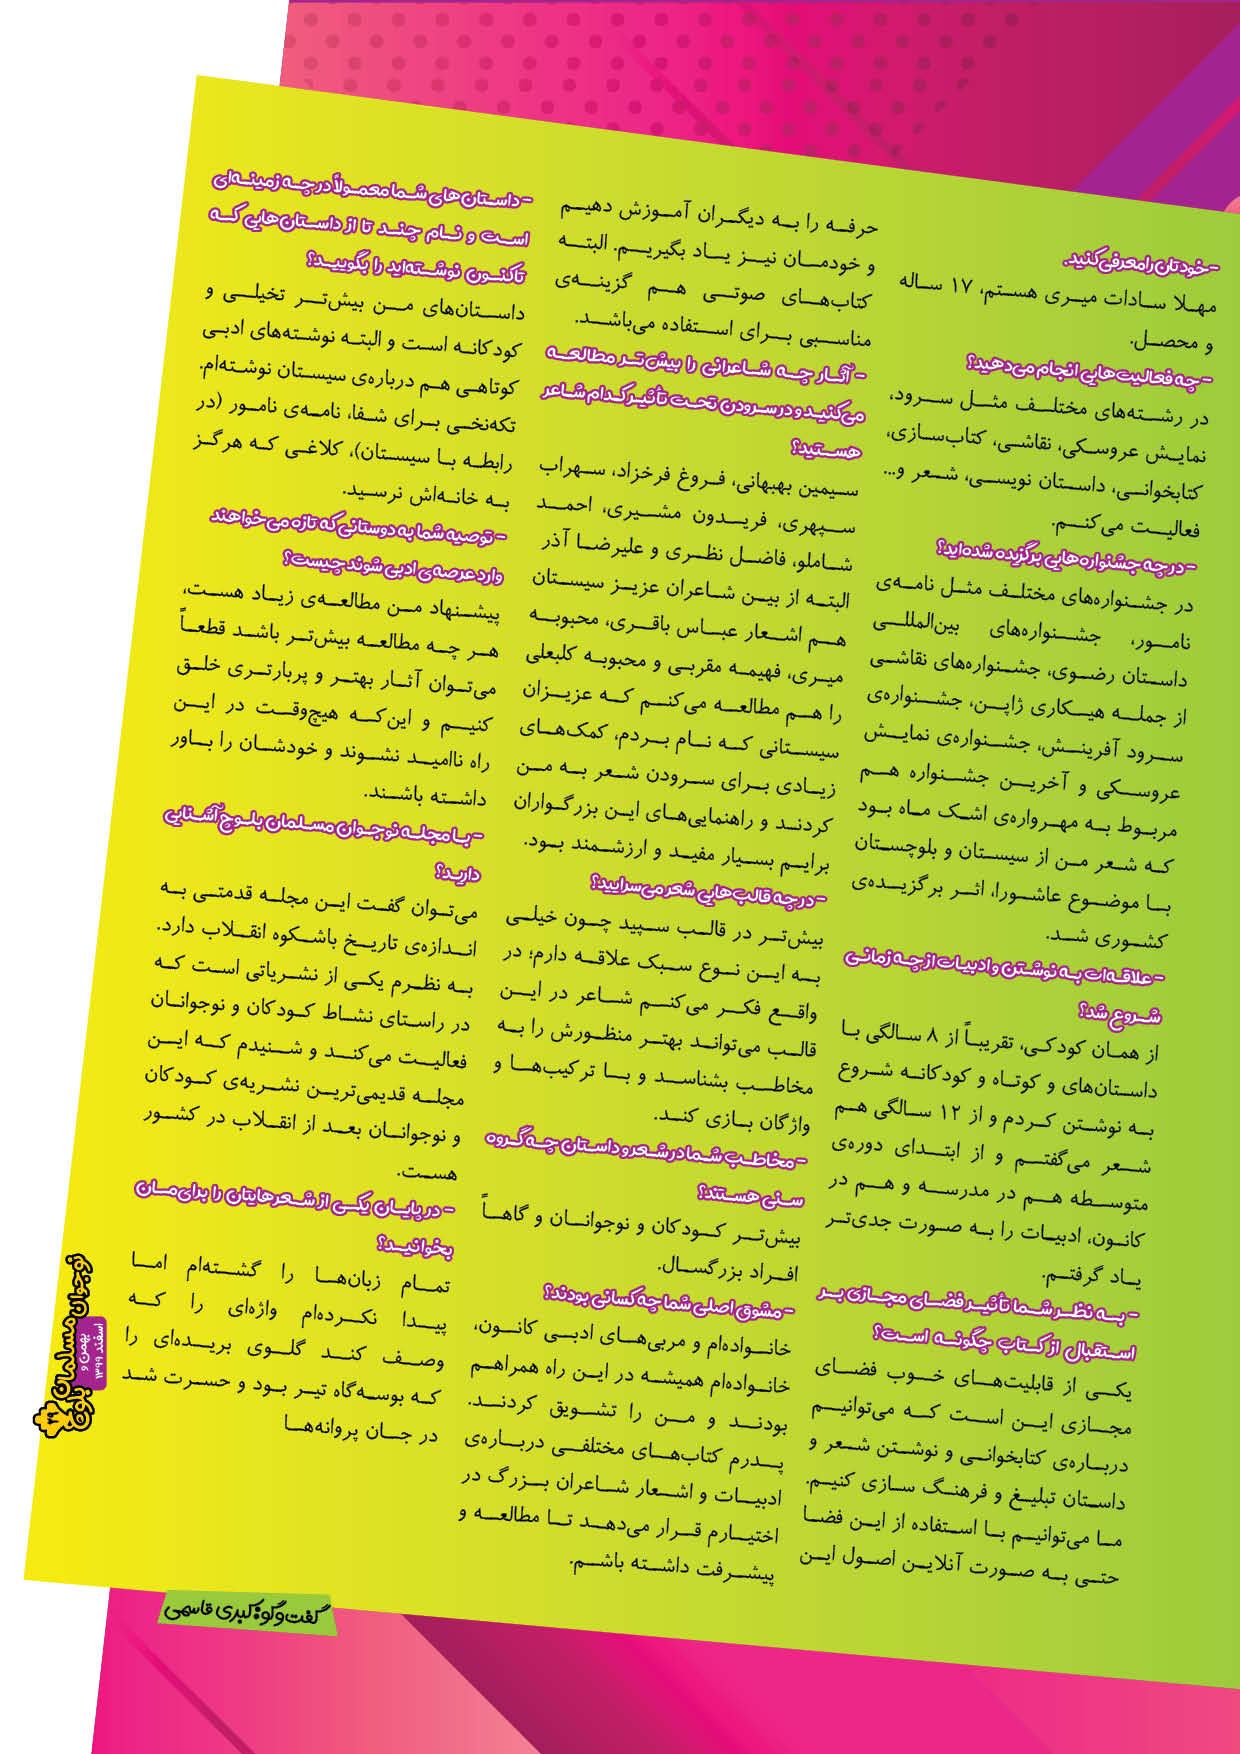 - خودتان را معرفی کنید.
مهلا سادات میری هستم، ۱۷ ساله
و محصل.
- چه فعالیت‌هایی انجام می‌دهید؟
در رشته‌های مختلف مثل سرود،
نمایش عروسکی، نقاشی، کتاب‌سازی،
کتابخوانی، داستان نویسی، شعر و...
فعالیت می‌کنم.
- در چه جشنواره‌هایی برگزیده شده‌اید؟
در جشنواره‌های مختلف مثل نامه‌ی
نامور، جشنواره‌های بین‌المللی
داستان رضوی، جشنواره‌های نقاشی
از جمله هیکاری ژاپن، جشنواره‌ی
سرود آفرینش، جشنواره‌ی نمایش
عروسکی و آخرین جشنواره هم
مربوط به مهرواره‌ی اشک ماه بود
که شعر من از سیستان و بلوچستان
با موضوع عاشورا، اثر برگزیده‌ی
کشوری شد.
- علاقه‌ات به نوشتن و ادبیات از چه زمانی
شروع شد؟
از همان کودکی، تقریباً از ۸ سالگی با
داستان‌های و کوتاه و کودکانه شروع
به نوشتن کردم و از ۱۲ سالگی هم
شعر می‌گفتم و از ابتدای دوره‌ی
متوسطه هم در مدرسه و هم در
کانون، ادبیات را به صورت جدی‌تر
یاد گرفتم.
- به نظر شما تأثیر فضای مجازی بر
استقبال از کتاب چگونه است؟
یکی از قابلیت‌های خوب فضای
مجازی این است که می‌توانیم
درباره‌ی کتابخوانی و نوشتن شعر و
داستان تبلیغ و فرهنگ سازی کنیم.
ما می‌توانیم با استفاده از این فضا
حتی به صورت آنلاین اصول این
حرفه را به دیگران آموزش دهیم
و خودمان نیز یاد بگیریم. البته
کتاب‌های صوتی هم گزینه‌ی
مناسبی برای استفاده می‌باشد.
- آثار چه شاعرانی را بیش‌تر مطالعه
می‌کنید و در سرودن تحت تأثیر کدام شاعر
هستید؟
سیمین بهبهانی، فروغ فرخزاد، سهراب
سپهری، فریدون مشیری، احمد
شاملو، فاضل نظری و علیرضا آذر
البته از بین شاعران عزیز سیستان
هم اشعار عباس باقری، محبوبه
میری، فهیمه مقربی و محبوبه کلبعلی
را هم مطالعه می‌کنم که عزیزان
سیستانی که نام بردم، کمک‌های
زیادی برای سرودن شعر به من
کردند و راهنمایی‌های این بزرگواران
برایم بسیار مفید و ارزشمند بود.
- در چه قالب‌هایی شعر می‌سرایید؟
بیش‌تر در قالب سپید چون خیلی
به این نوع سبک علاقه دارم؛ در
واقع فکر می‌کنم شاعر در این
قالب می‌تواند بهتر منظورش را به
مخاطب بشناسد و با ترکیب‌ها و
واژگان بازی کند.
- مخاطب شما در شعر و داستان چه گروه
سنی هستند؟
بیش‌تر کودکان و نوجوانان و گاهاً
افراد بزرگسال.
- مشوق اصلی شما چه کسانی بودند؟
خانواده‌ام و مربی‌های ادبی کانون،
خانواده‌ام همیشه در این راه همراهم
بودند و من را تشویق کردند.
پدرم کتاب‌های مختلفی درباره‌ی
ادبیات و اشعار شاعران بزرگ در
اختیارم قرار می‌دهد تا مطالعه و
پیشرفت داشته باشم.
- داستان‌های شما معمولاً در چه زمینه‌ای
است و نام چند تا از داستان‌هایی که
تاکنون نوشته‌اید را بگویید؟
داستان‌های من بیش‌تر تخیلی و
کودکانه است و البته نوشته‌های ادبی
کوتاهی هم درباره‌ی سیستان نوشته‌ام.
تکه‌نخی برای شفا، نامه‌ی نامور (در
رابطه با سیستان)، کلاغی که هرگز
به خانه‌اش نرسید.
- توصیه شما به دوستانی که تازه می‌خواهند
وارد عرصه‌ی ادبی شوند چیست؟
پیشنهاد من مطالعه‌ی زیاد هست،
هر چه مطالعه بیش‌تر باشد قطعاً
می‌توان آثار بهتر و پربارتری خلق
کنیم و این‌که هیچ‌وقت در این
راه ناامید نشوند و خودشان را باور
داشته باشند.
- با مجله نوجوان مسلمان بلوچ آشنایی
دارید؟
می‌توان گفت این مجله قدمتی به
اندازه‌ی تاریخ باشکوه انقلاب دارد.
به نظرم یکی از نشریاتی است که
در راستای نشاط کودکان و نوجوانان
فعالیت می‌کند و شنیدم که این
مجله قدیمی‌ترین نشریه‌ی کودکان
و نوجوانان بعد از انقلاب در کشور
هست.
- در پایان یکی از شعرهایتان را برای‌مان
بخوانید؟
تمام زبان‌ها را گشته‌ام اما
پیدا نکرده‌ام واژه‌ای را که
وصف کند گلوی بریده‌ای را
که بوسه‌گاه تیر بود و حسرت شد
در جان پروانه‌ها
گفت‌وگو: کبری قاسمی
نوجوان مسلمان بلوچ
بهمن و
اسفند ۱۳۹۹
۴۹